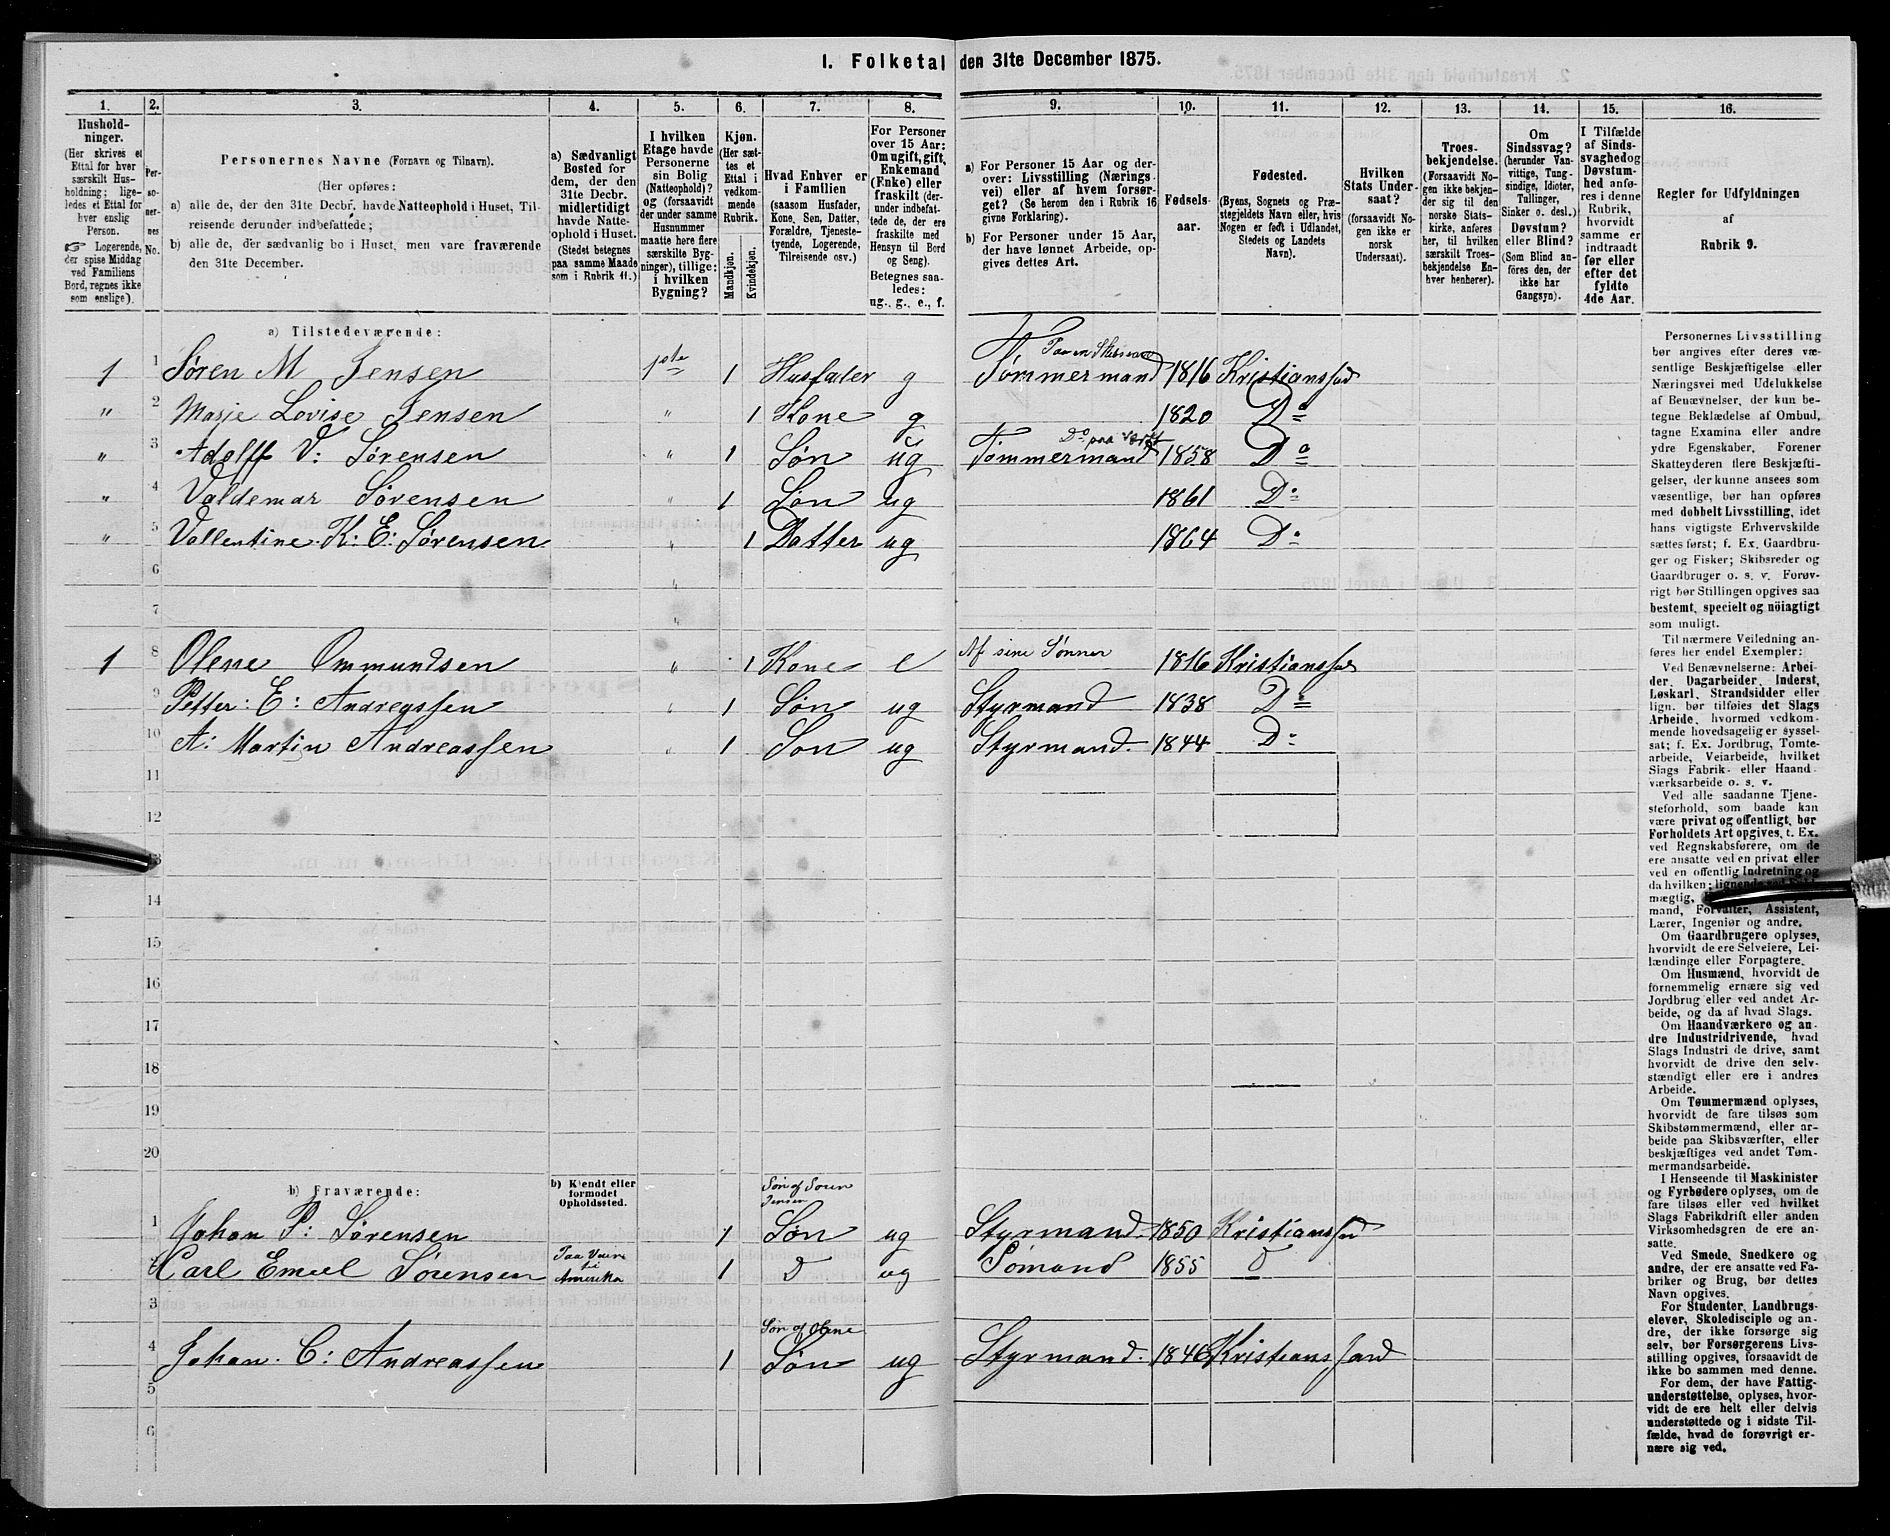 1. Folketal den 31te December 1875.
1. 2. 3. 4. 5. 6. 7. 8. 9. 10. 11. 12. 13. 14. 15. 16.
Hushold-
ninger.
(Her skrives et
Ettal for hver
særskilt Hus-
holdning; lige-
ledes et Ettal for
hver enslig
Person.
☞ Logerende,
der spise Middag
ved Familiens
Bord, regnes ikke
som enslige).
Per-
so-
ner-
nes
No.
Personernes Navne (Fornavn og Tilnavn).
(Her opføres:
a) alle de, der den 31te Decbr. havde Natteophold i Huset, Til-
reisende derunder indbefattede;
b) alle de, der sædvanlig bo i Huset, men vare fraværende
den 31te December.
a) Sædvanligt
Bosted for
dem, der den
31te Decbr.
midlertidigt
havde Natte-
ophold i Huset.
(Stedet betegnes
paa samme Maade
som i Rubrik 11.)
I hvilken
Etage havde
Personerne
sin Bolig
(Natteophold)?
og (forsaavidt
der under samme
Husnummer
maatte høre flere
særskilte Byg-
ninger), tillige:
i hvilken
Bygning?
Kjøn.
(Her sæt-
tes et
Ettal i
vedkom-
mende
Rubrik.
Mandkjøn.
Kvindekjøn.
Hvad Enhver er
i Familien
(saasom Husfader,
Kone, Søn, Datter,
Forældre, Tjeneste-
tyende, Logerende,
Tilreisende osv.)
For Personer
over 15 Aar:
Om ugift, gift,
Enkemand
(Enke) eller
fraskilt (der-
under indbefat-
tede de, der ere
fraskilte med
Hensyn til Bord
og Seng).
Betegnes saa-
ledes:
ug., g., e., f.
a) For Personer 15 Aar og der-
over: Livsstilling (Nærings-
vei) eller af hvem forsør-
get? (Se herom den i Rubrik 16
givne Forklaring).
b) For Personer under 15 Aar,
der have lønnet Arbeide, op-
gives dettes Art.
Fødsels-
aar.
Fødested.
(Byens, Sognets og Præ-
stegjeldets Navn eller, hvis
Nogen er født i Udlandet,
Stedets og Landets
Navn).
Hvilken
Stats Under-
saat?
(forsaavidt No-
gen ikke er
norsk
Undersaat).
Troes-
bekjendelse.
(Forsaavidt No-
gen ikke bekjen-
der sig til den
norske Stats-
kirke, anføres
her, til hvilken
særskilt Troes-
bekjendelse En-
hver henhører).
Om
Sindssvag?
(herunder Van-
vittige, Tung-
sindige, Idioter,
Tullinger,
Sinker o. desl.)
Døvstum?
eller Blind?
(Som Blind an-
føres den, der
ikke har
Gangsyn).
I Tilfælde
af Sinds-
svaghed og
Døvstum-
hed anfø-
res i denne
Rubrik,
hvorvidt
samme er
indtraadt
før eller
efter det
fyldte
4de Aar.
Regler for Udfyldningen
af
Rubrik 9.
a) Tilstedeværende:
1 1 Søren M Jensen 1ste 1 Husfader g Tømmermand 1816 Kristianssad
" 2 Marje Lovise Jensen " 1 Kone g 1820 Do
" 3 Adolff V: Sørensen " 1 Søn ug Do paa Værft Tømmermand 1858 Do
" 4 Valdemar Sørensen " 1 Søn ug 1861 Do
" 5 Vallentine K: E: Sørensen " 1 Datter ug 1864 Do
6 "
7 "
1 8 Olene Ommundsen " 1 Kone e Af sine Sønner 1816 Kristianssad
9 Petter: E: Andreassen " 1 Søn ug Styrmand 1838 Do
10 A: Martin Andreassen " 1 Søn ug Styrmand. 1844 Do
11
12
13
14
15
16
17
18
19
20
b) Fraværende:
b) Kjendt eller
formodet
Opholdssted.
Søn af Søren
Jensen
1 Johan P: Sørensen 1 Søn ug Styrmand. 1850 Kristianssad
2 Carl Emiel Sørensen Paa Veien til Amerika 1 D ug Sømand 1855 D
3
Søn af Olene
4 Johan. C: Andreassen 1 Søn ug Styrmand. 1846 Kristianssand
5
6
Personernes Livsstilling
bør angives efter deres væ-
sentlige Beskjæftigelse eller
Næringsvei med Udelukkelse
af Benævnelser, der kun be-
tegne Beklædelse af Ombud,
tagne Examina eller andre
ydre Egenskaber. Forener
Skatteyderen flere Beskjæfti-
gelser, der kunne ansees som
væsentlige, bør han opføres
med dobbelt Livsstilling, idet
hans vigtigste Erhvervskilde
sættes først; f. Ex. Gaardbru-
ger og Fisker; Skibsreder og
Gaardbruger o. s. v. Forøv-
rigt bør Stillingen opgives saa
bestemt, specielt og nöiagtigt
som muligt.
Til nærmere Veiledning an-
føres her endel Exempler:
Ved Benævnelserne: Arbei-
der, Dagarbeider, Inderst,
Løskarl, Strandsidder eller
lign. bør tilføies det Slags
Arbeide, hvormed vedkom-
mende hovedsagelig er syssel-
sat; f. Ex. Jordbrug, Tomte-
arbeide, Veiarbeide, hvilket
Slags Fabrik- eller Haand-
værksarbeide o. s. v.
Ved alle saadanne Tjene-
steforhold, som baade kan
være privat og offentligt, bør
Forholdets Art opgives, t. Ex.
ved Regnskabsførere, om de
ere ansatte ved en privat eller
ved en offentlig Indretning og
da hvilken; lignende ved
mægtig,
mand, Forvalter, Assistent,
Lærer, Ingeniør og andre.
Om Gaardbrugere oplyses,
hvorvidt de ere Selveiere, Lei-
lændinge eller Forpagtere.
Om Husmænd, hvorvidt de
fornemmelig ernære sig ved
Jordbrug eller ved andet Ar-
beide, og da af hvad Slags.
Om Haandværkere og an-
dre Industridrivende, hvad
Slags Industri de drive, samt
hvorvidt de drive den selv-
stændigt eller ere i andres
Arbeide.
Om Tømmermænd oplyses,
hvorvidt de fare tilsøs som
Skibstømmermænd, eller ar-
beide paa Skibsværfter, eller
beskjæftiges ved andet Tøm-
mermandsarbeide.
I Henseende til Maskinister
og Fyrbødere oplyses, om de
fare tilsøs eller ved hvilket
Slags Fabrikdrift eller anden
Virksomhedsgren de ere an-
satte.
Ved Smede, Snedkere og
andre, der ere ansatte ved Fa-
briker og Brug, bør dettes
Navn opgives.
For Studenter, Landbrugs-
elever, Skoledisciple og an-
dre, der ikke forsørge sig
selv, bør Forsørgerens Livs-
stilling opgives, forsaavidt de
ikke bo sammen med denne.
For dem, der have Fattig-
understøttelse, oplyses, hvor-
vidt de ere helt eller delvis
understøttede og i sidste Til-
fælde, hvad de forøvrigt er-
nære sig ved.